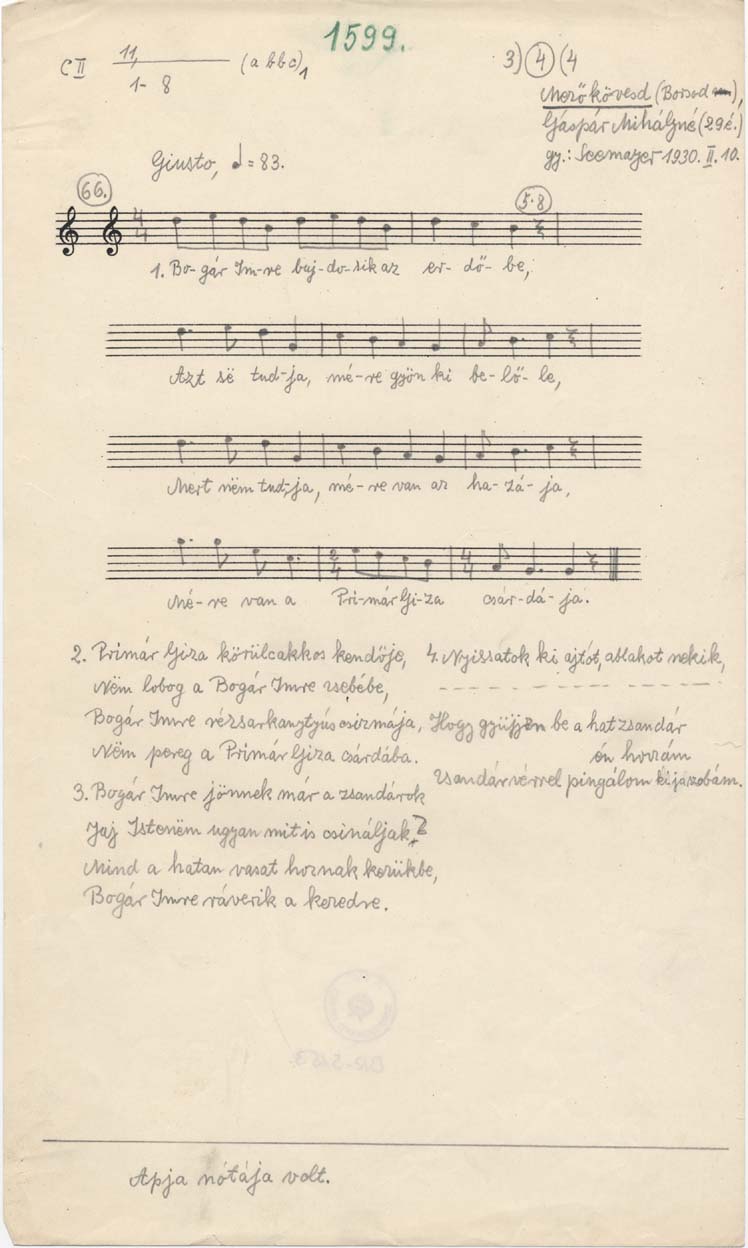 1599.
C II 11, 1- 8 (a b b c)1
3) 4 (4
Mezőkövesd (Borsod),
Gáspár Mihályné (29é.)
gy.: Seemayer 1930. II. 10.
Giusto, = 83.
66.
5·8
4 4
1. Bo-gár Im-re buj-do-sik az er-dő-be,
Azt së tud-ja, mé-re gyön ki be-lő-le,
Mert nëm tud-ja, mé-re van az ha-zá-ja,
2 4 4 4
Mé-re van a Pri-már Gi-za csár-dá-ja.
2. Primár Giza körülcakkos kendője,
Nëm lobog a Bogár Imre zsebébe,
Bogár Imre rézsarkantyús csizmája,
Nëm pereg a Primár Giza csárdába.
3. Bogár Imre jönnek már a zsandárok
Jaj Istenëm ugyan mit is csináljak?
Mind a hatan vasat hoznak kezükbe,
Bogár Imre ráverik a kezedre.
4. Nyissatok ki ajtót, ablakot nekik,
Hogy gyüjjön be a hat zsandár
én hozzám
Zsandárvérrel pingálom ki szobám.
Apja nótája volt.